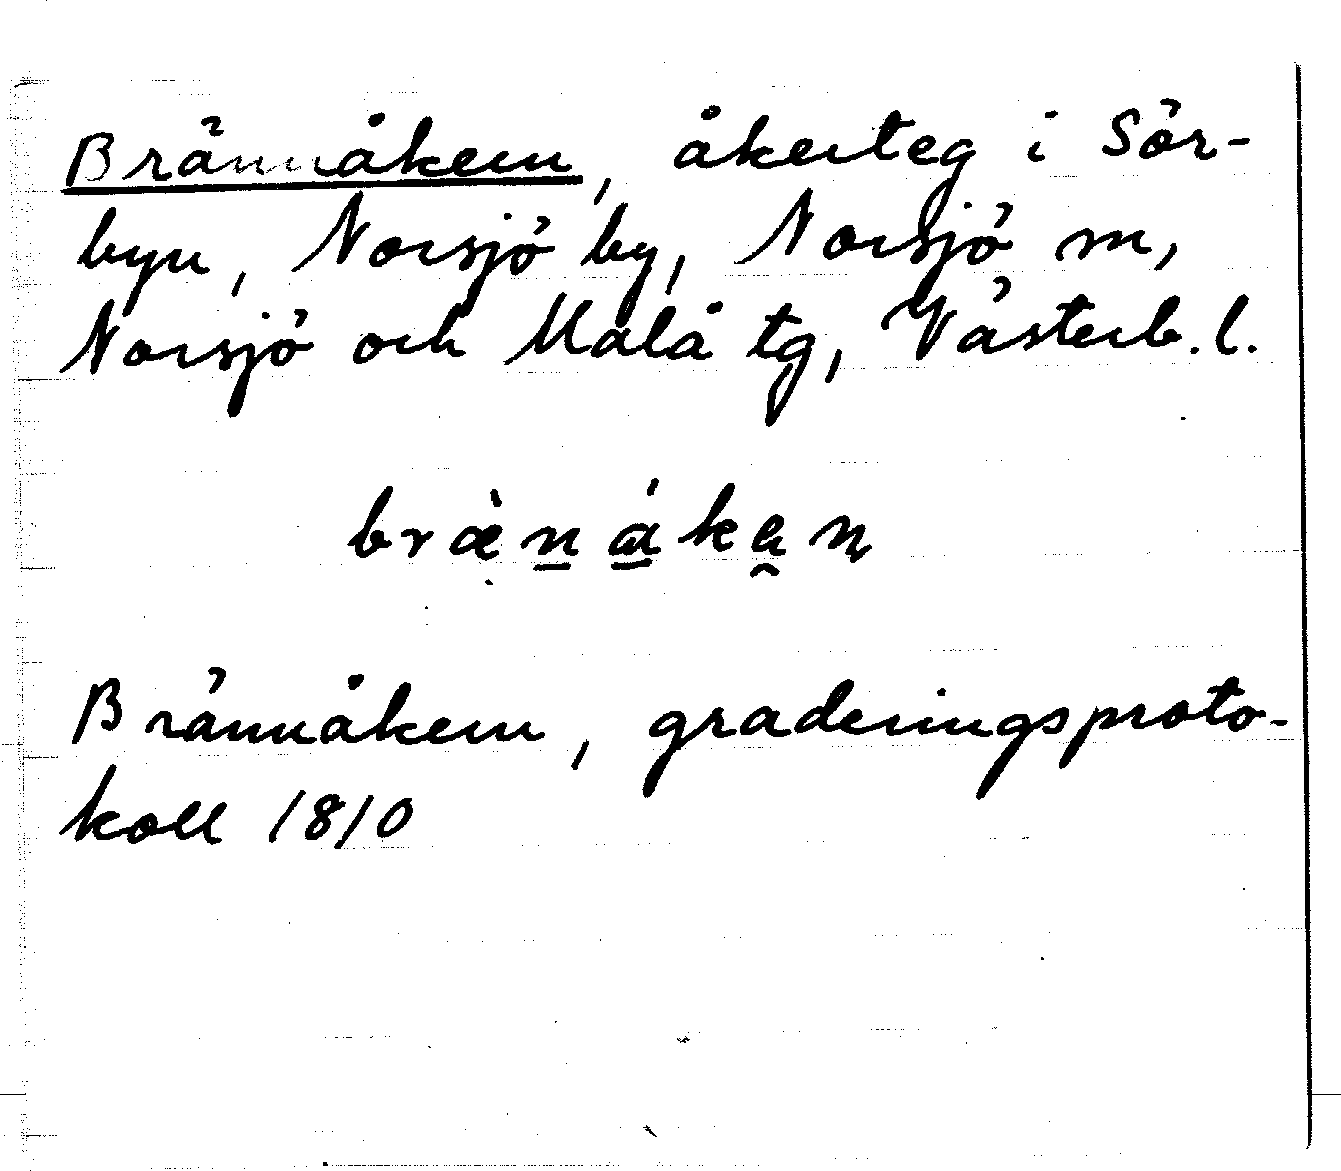 Brännåkern, åkerteg i Sör-
byn, Norsjö by, Norsjö m,
Norsjö och Malå tg, Västerb. l.
Brännåkern, graderingsproto-
koll 1810